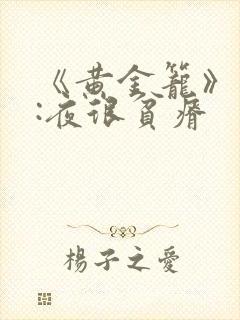 《黄金籠》
:夜很貧瘠
楊子之愛